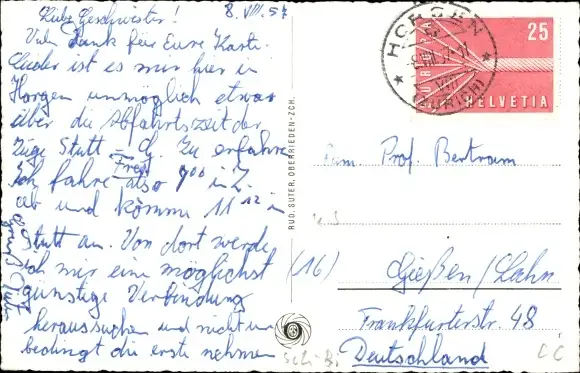 8. VIII. 57
Liebe Geschwister!
Viel Dank für Eure Karte.
Leider ist es mir hier in
Horgen unmöglich etwas
über die Abfahrtszeit der
Züge Stutt – G. zu erfahren
Ich fahre Frei also 7⁰⁰ in Z.
ab und komme 11¹² in
Stutt an. Von dort werde
ich mir eine möglichst
günstige Verbindung
heraussuchen und nicht un
bedingt die erste nehmen
RUD. SUTER, OBERRIEDEN-ZCH.
HORGEN
(ZÜRICH)
EUROPA
25
HELVETIA
Fam. Prof. Bertram
(16)
Gießen/Lahn
Frankfurterstr. 48
Deutschland